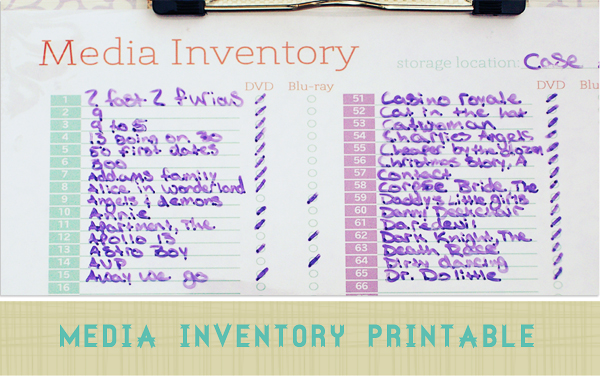 Media Inventory
storage location: Case
DVD Blu-ray
1 2 fast 2 furious
2 9
3 9 to 5
4 13 going on 30
5 50 first dates
6 300
7 Addams family
8 Alice in wonderland
9 Angels & demons
10 Annie
11 Apartment, The
12 Apollo 13
13 Astro Boy
14 AVP
15 Away we go
16
DVD Blu
51 Casino royale
52 Cat in the hat
53 Catwoman
54 Charlies Angels
55 Cheaper by the dozen
56 Christmas Story, A
57 Contact
58 Corpse Bride, The
59 Daddy's Little Girls
60 Danny Deckchair
61 Daredevil
62 Dark Knight, The
63 Death Race
64 Dirty dancing
65 Dr. Dolittle
66
MEDIA INVENTORY PRINTABLE